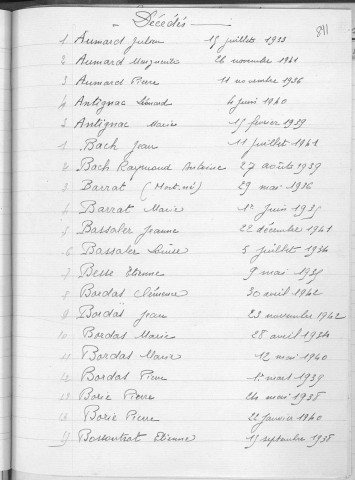 Décédés
891
1 Aumard 15 juillet 1933
2 Aumard Marguerite 26 novembre 1941
3 Aumard Pierre 11 novembre 1936
4 Antignac Léonard 4 juin 1940
5 Antignac Marie 15 février 1939
1 Bach Jean 11 juillet 1941
2 Bach Raymond Antoine 27 août 1939
3 Barrat (Mort-né) 29 mai 1936
4 Barrat Marie 1er juin 1935
5 Bassaler Jeanne 22 décembre 1941
6 Bassaler Louise 5 juillet 1934
7 Besse Etienne 9 mai 1935
8 Bordas Clémence 30 avril 1942
9 Bordas Jean 23 novembre 1942
10 Bordas Marie 28 avril 1934
11 Bordas Marie 12 mai 1940
12 Bordas Pierre 1er mars 1939
13 Borie Pierre 24 mai 1938
14 Borie Pierre 22 janvier 1940
15 Etienne 15 septembre 1938